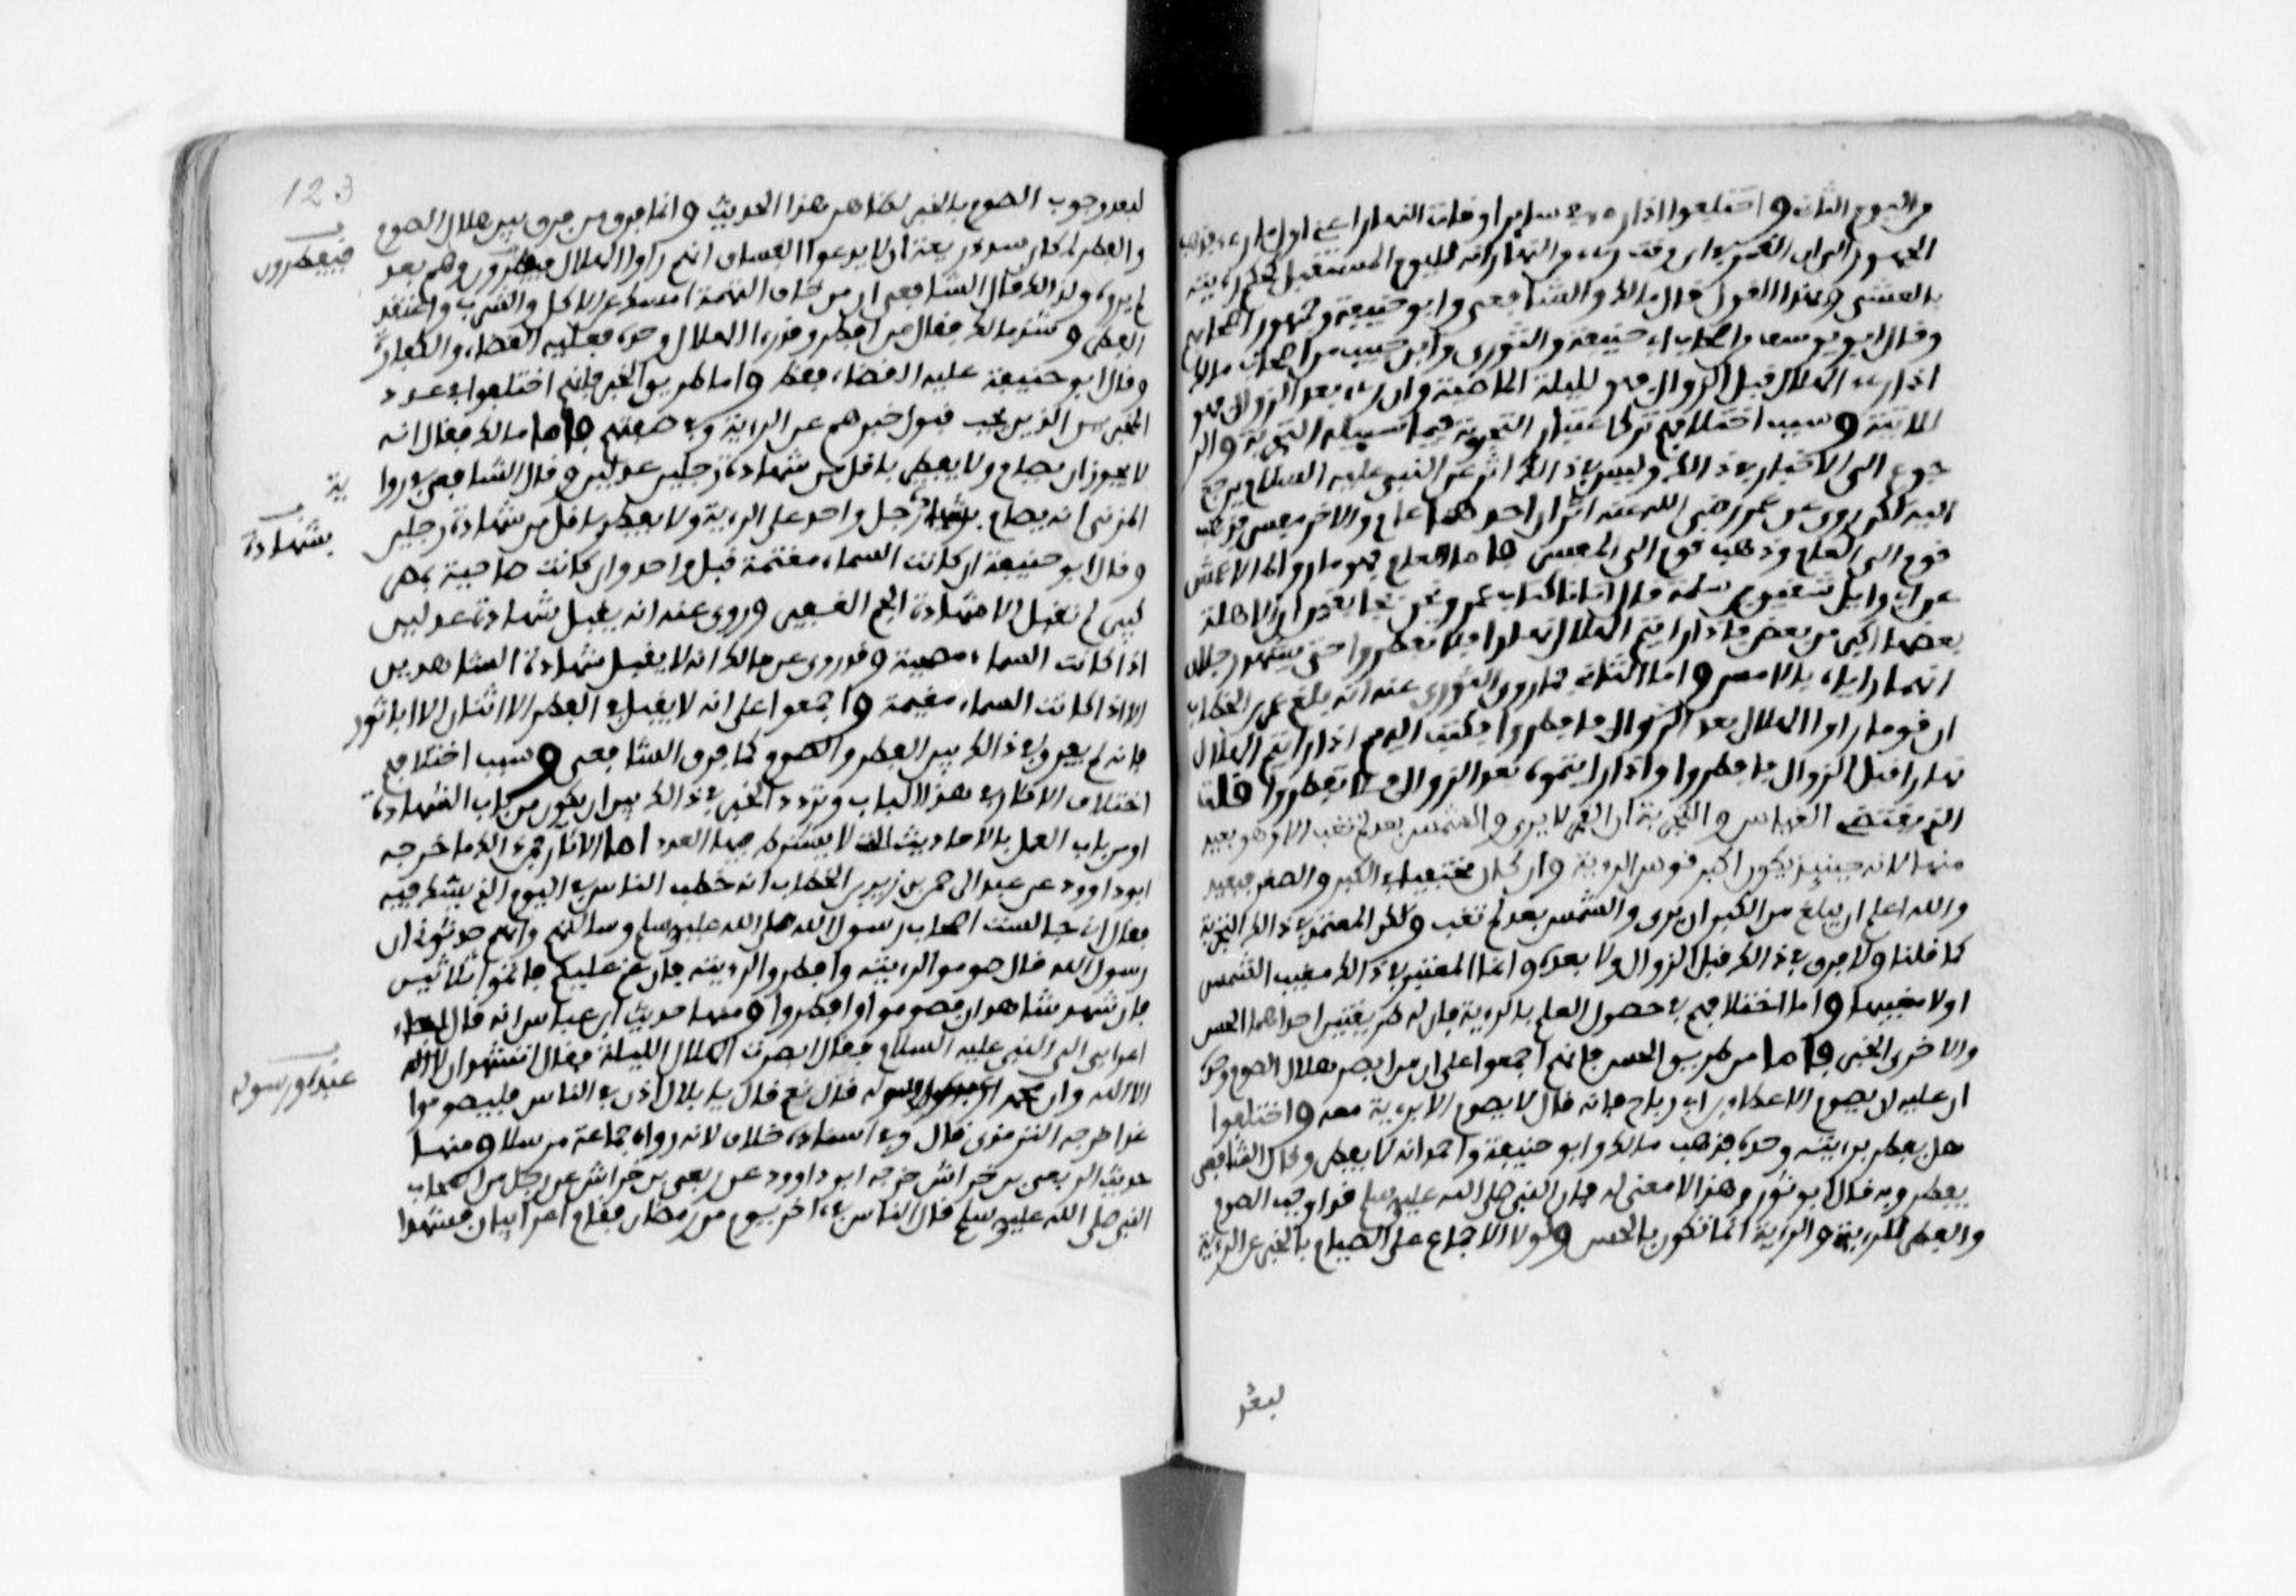 من اليوم الثاني واختلفوا اذا رءى في ساير اوقات النهار اعني اول ما رءى فمذهب
الجمهور الى ان القمر في اي وقت رءى من النهار انه لليوم المستقبل كحكم رؤيته
بالعشي وبهذا القول قال مالك والشافعي وابو حنيفة وجمهور اصحابهم
وقال ابو يوسف من اصحاب ابي حنيفة والثوري وابن حبيب من اصحاب مالك
اذا رءى الهلال قبل الزوال فهو لليلة الماضية وان رءى بعد الزوال فهو
للاتية وسبب اختلافهم ترك اعتبار التجربة فيما سبيله التجربة والر
جوع الى الاخبار في ذالك وليس في ذالك اثر عن النبي عليه السلام يرجع
اليه لكن روي عن عمر رضي الله عنه اثران احدهما عام والاخر مفسر فذهب
قوم الى العام وذهب قوم الى المفسر فاما العام فهو ما رواه الاعمش
عن ابي وايل شقيق بن سلمة قال اتانا كتاب عمر ونحن بخانقين ان الاهلة
بعضها اكبر من بعض فاذا رايتم الهلال نهارا فلا تفطروا حتى يشهد رجلان
انهما راياه بالامس واما الثاني فما روى الثوري عنه انه بلغ عمر بن الخطاب
ان قوما راوا الهلال بعد الزوال فافطروا فكتب اليهم اذا رايتم الهلال
نهارا قبل الزوال فافطروا واذا رايتموه بعد الزوال فلا تفطروا قلت
الذي يقتضي القياس والتجربة ان القمر لا يرى والشمس بعد لم تغب الا وهو بعيد
منها لانه حينيذ يكون اكبر قوس الرءية وان كان يختلف في الكبر والصغر فبعيد
والله اعلم ان يبلغ من الكبر ان يرى والشمس بعد لم تغب ولكن المعتمد في ذالك التجربة
كما قلنا ولا فرق في ذالك قبل الزوال ولا بعده وانما المعتبر في ذالك مغيب الشمس
او لا مغيبها واما اختلافهم في حصول العلم بالرءية فان له طريقتين احداهما الحس
والاخرى الخبر فاما من طريق الحس فانهم اجمعوا على ان من ابصر هلال الصوم وحده
ان عليه ان يصوم الا عطاء بن ابي رباح فانه قال لا يصوم الا برءية معه واختلفوا
هل يفطر برءيته وحده فذهب مالك وابو حنيفة واحمد انه لا يفطر وقال الشافعي
يفطر وبه قال ابو ثور وهذا لا معنى له فان النبي صلى الله عليه وسلم قد اوجب الصوم
والفطر للرءية والرءية انما تكون بالحس ولولا الاجماع على الصيام بالخبر عن الرءية
لبعد
123
لبعد وجوب الصوم بالخبر لظاهر هذا الحديث وانما فرق من فرق بين هلال الصوم
والفطر لمكان سد ذريعة ان لا يدعوا الفساق انهم راوا الهلال فيفطرون وهم بعد
فيفطرون
لم يروه ولذالك قال الشافعي ان من خاف التهمة امسك عن الاكل والشرب واعتقد
الفطر وشذ مالك فقال من افطر وقد رءا الهلال وحده فعليه القضاء والكفارة
وقال ابو حنيفة عليه القضاء فقط واما طريق الخبر فانهم اختلفوا في عدد
المخبرين الذين يجب قبول خبرهم عن الرءية وفي صفتهم فاما مالك فقال انه
لا يجوز ان يصام ولا يفطر باقل من شهادة رجلين عدلين وقال الشافعي في روا
ية
المزني انه يصام بشهادة رجل واحد على الرءية ولا يفطر باقل من شهادة رجلين
بشهادة
وقال ابو حنيفة ان كانت السماء مغتمة قبل واحد وان كانت صاحية بمصر
كبير لم تقبل الا شهادة الجم الغفير وروي عنه انه يقبل شهادة عدلين
اذا كانت السماء مصحية وقد روي عن مالك انه لا يقبل شهادة الشاهدين
الا اذا كانت السماء مغيمة واجمعوا على انه لا يقبل في الفطر الا اثنان الا ابا ثور
فانه لم يفرق في ذالك بين الفطر والصوم كما فرق الشافعي وسبب اختلافهم
اختلاف الاثار في هذا الباب وتردد الخبر في ذالك بين ان يكون من باب الشهادة
او من باب العمل بالاحاديث التي لا يشترط فيها العدد اما الاثار فمن ذالك ما خرجه
ابو داوود عن عبد الرحمن بن زيد بن الخطاب انه خطب الناس في اليوم الذي يشك فيه
فقال اني جالست اصحاب رسول الله صلى الله عليه وسلم وسالتهم وانهم حدثوني ان
رسول الله قال صوموا لرءيته وافطروا لرءيته فان غم عليكم فاتموا ثلاثين
فان شهد شاهدان فصوموا او افطروا ومنها حديث ابن عباس انه قال جاء
اعرابي الى النبي عليه السلام فقال ابصرت الهلال الليلة فقال اتشهد ان لا اله
الا الله وان محمدا عبده ورسوله قال نعم قال يا بلال اذن في الناس فليصوموا
عبده ورسوله
غدا خرجه الترمذي قال وفي اسناده خلاف لانه رواه جماعة مرسلا ومنها
حديث الربعي بن خراش خرجه ابو داوود عن ربعي بن خراش عن رجل من اصحاب
النبي صلى الله عليه وسلم قال الناس في ءاخر يوم من رمضان فقام اعرابيان فشهدا